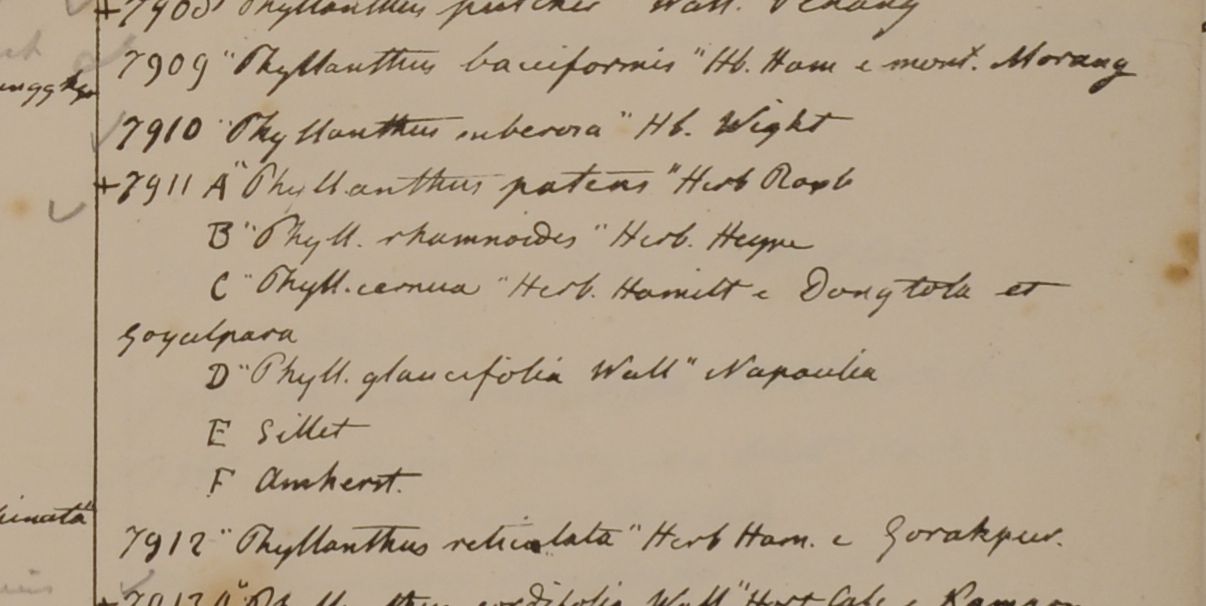 +7908 "Phyllanthus pulcher" Wall. Penang
7909 "Phyllanthus bacciformis" Hb. Ham e mont. Morang
7910 "Phyllanthus suberosa" Hb. Wight
+7911 A "Phyllanthus patens" Herb Roxb
B "Phyll. rhamnoides" Herb. Heyne
C "Phyll. cernua" Herb. Hamilt e Dongtola et
Goyalpara
D "Phyll. glaucifolia Wall" Napaulia
E Sillet
F Amherst.
7912 "Phyllanthus reticulata" Herb Ham. e Gorakpur.
+7913 A "Phyllanthus cordifolia Wall" Hort Calc e Kamaon